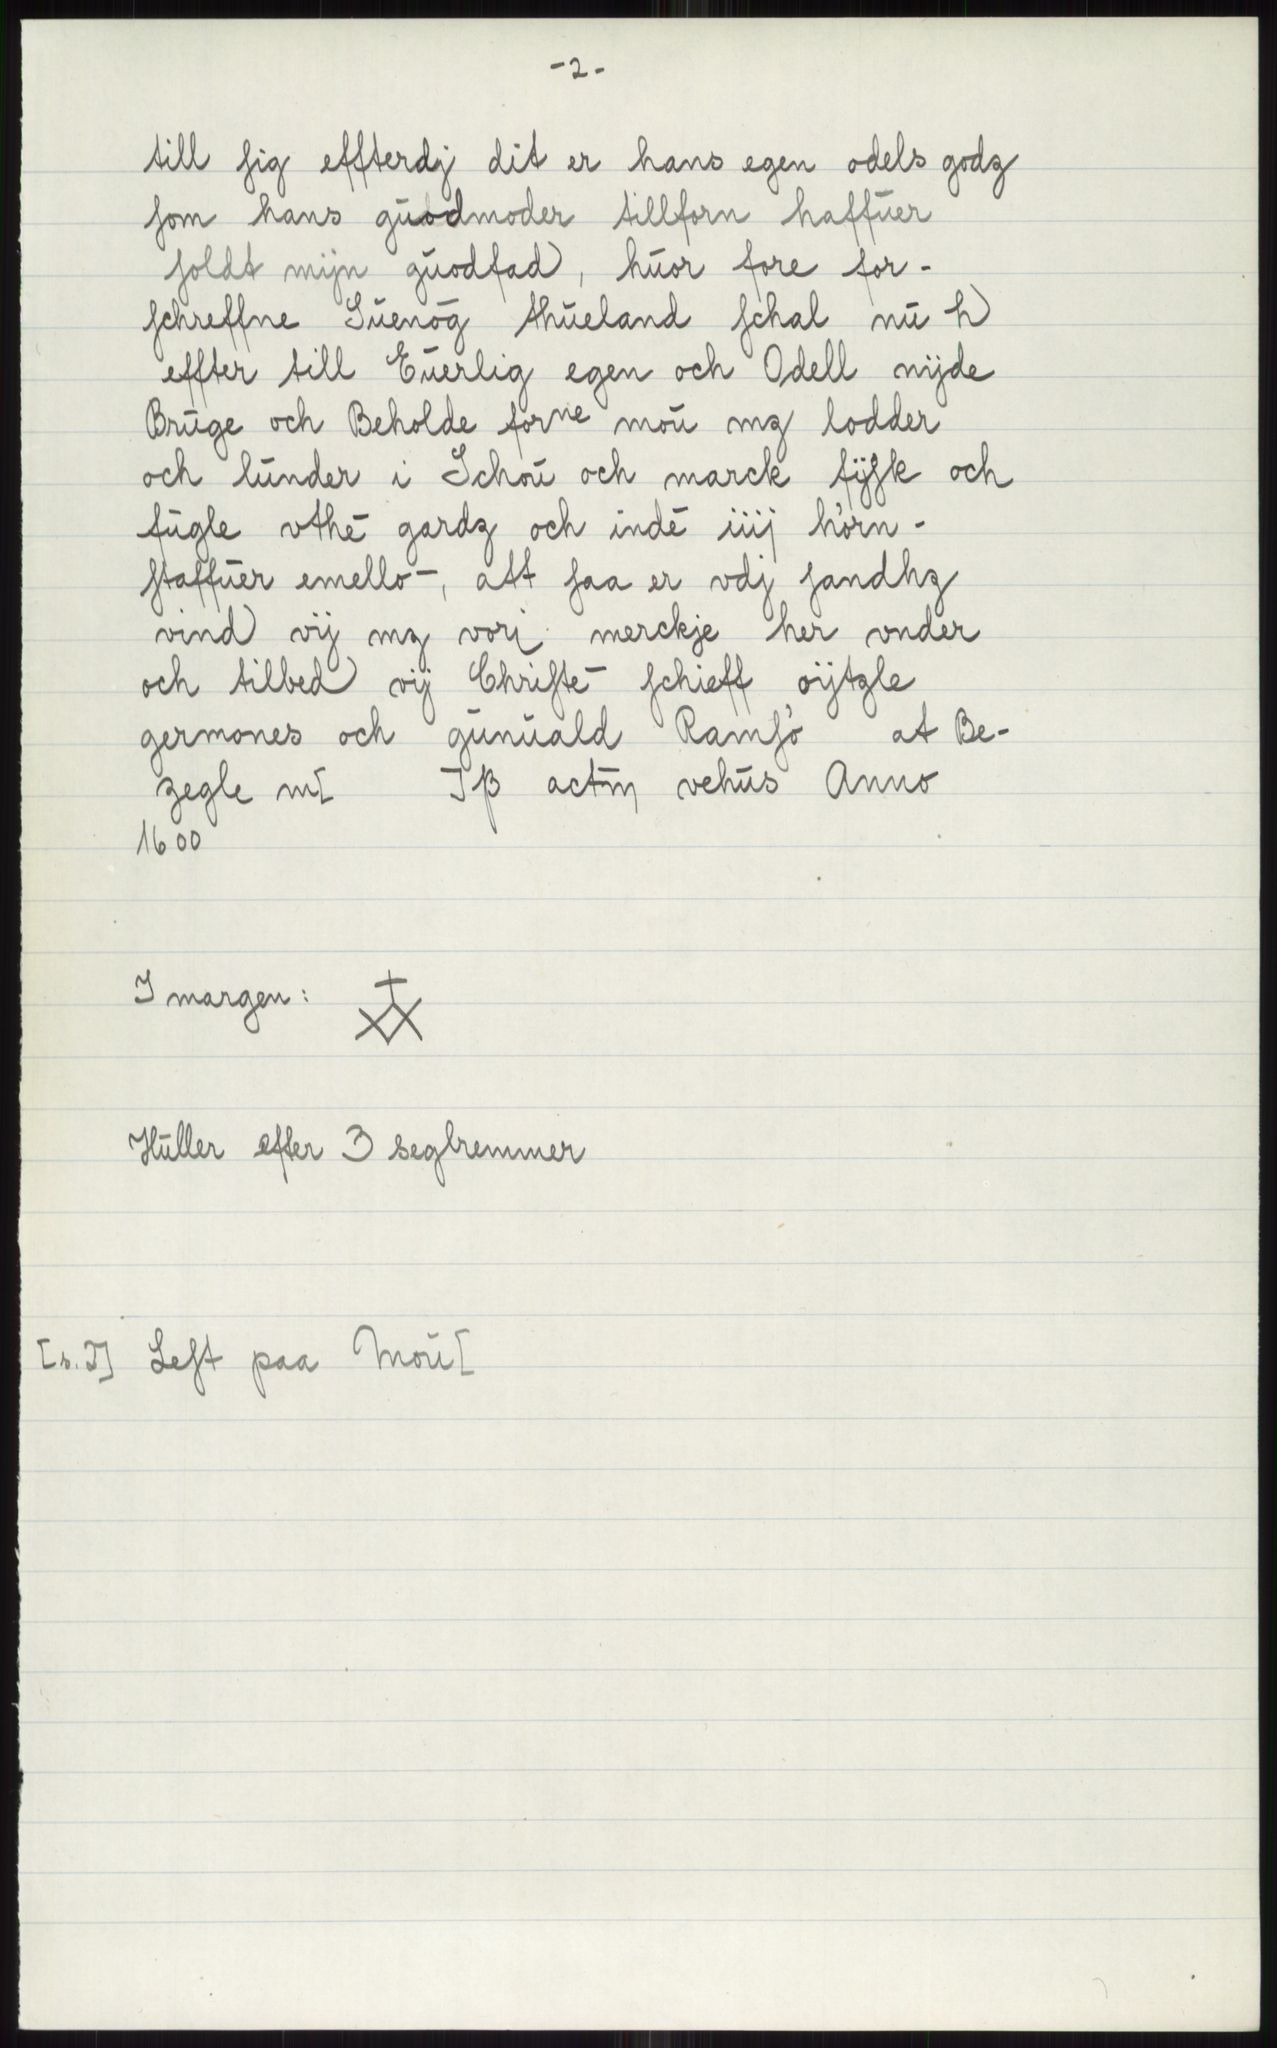 -2-
till ſig effterdj dit er hans egen odels godz
ſom hans guodmoder tillforn haffuer
ſoldt mijn guodfad), huor fore for-
ſchreffne Suenōg thueland ſchal nu h)
effter till Euerlig egen och Odell nijde
Bruge och Beholde forne mou mz lodder
och lunder i Schou och marck fyſk och
fugle vthē gardz och indē iiij hörn-
ſtaffuer emello-, att ſaa er vdj ſandhz
vind) vij mz vorj merckje her vnder
och tilbed) vij Chriſtē ſchieff oijtzle
germones och gunuald Ramſö at Be-
zegle m[ Iβ actm vehus Anno
1600
I margen:
Huller efter 3 seglremmer
[s.I] Left paa Mou[